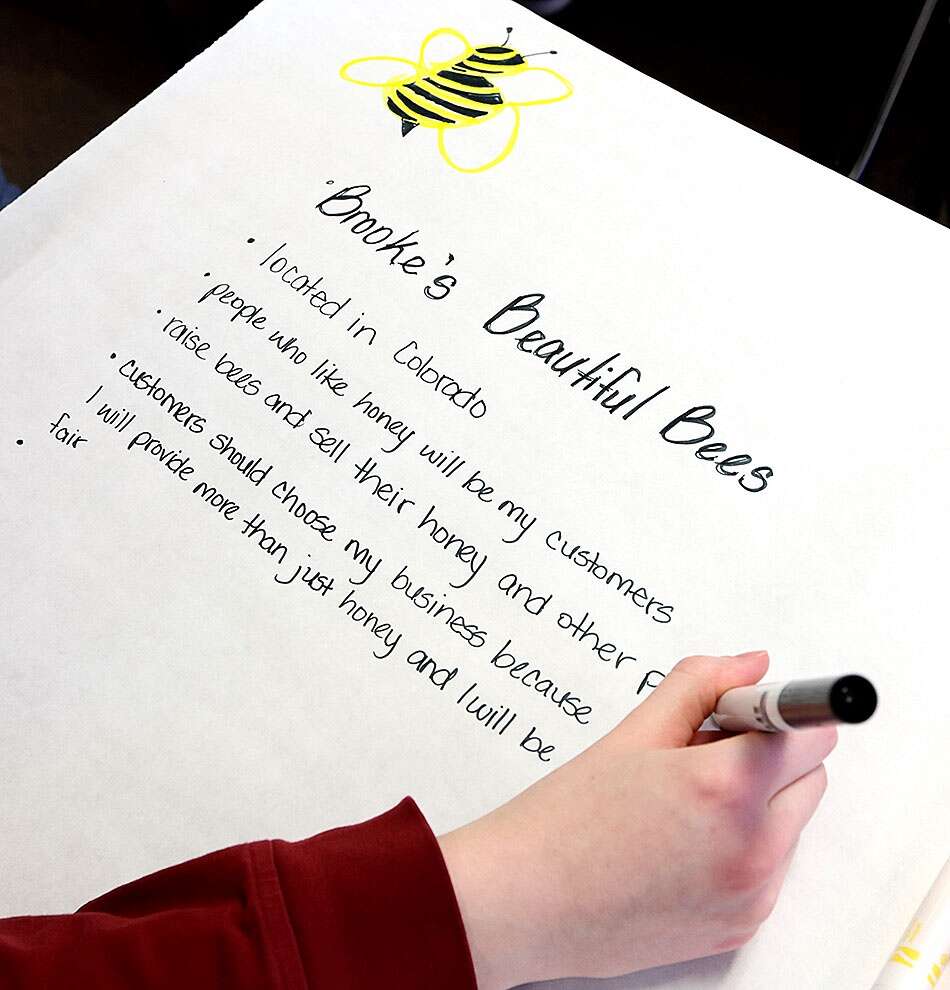 Brooke's Beautiful Bees
• located in Colorado
• people who like honey will be my customers
• raise bees and sell their honey and other
• customers should choose my business because
I will provide more than just honey and I will be
fair
•